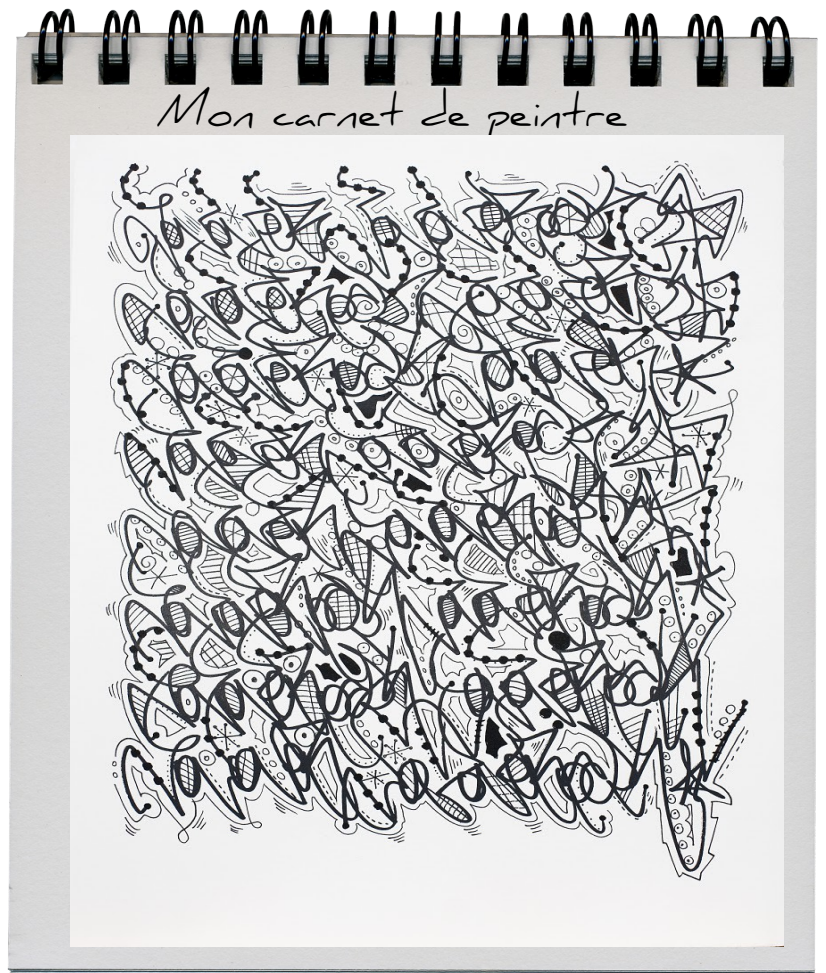 Mon carnet de peintre